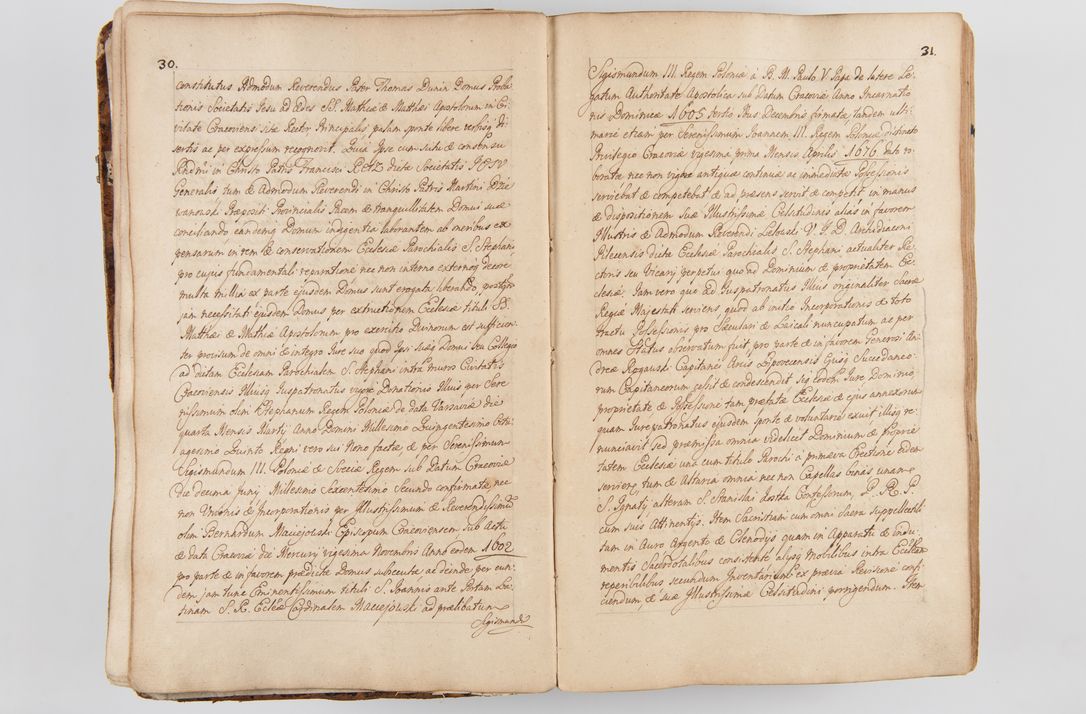 30.
constitutus Admodum Reverendus Pater Thomas Dunin Domus Proba
tionis Societatis Jesu ad Ædes SS. Mathiæ & Mathæi Apostolorum in Ci
vitate Cracoviens: sitæ Rector Principalis palam sponte libere verbisq; di
sertis ac per expressum recognovit. Quia Ipse cum sudu & consensu
Rndmi in Christo Patris Francisci RETZ dictæ Societatis JESU
Generalis tum & Admodum Reverendi in Christo Patris Martini
vanowski Præpositi Provincialis Pacem & tranquillitatem Domus suæ
conciliando eandemq; Domum indigentia laborantem ab oneribus ex
pensarum in rem & conservationem Ecclesiæ Parochialis S. Stephani
pro cujus fundamentali reparatione nec non interno externoq; decore
multa millia ex parte ejusdem Domus sunt erogata liberando, postq̃m
jam necessitati ejusdem Domus per extructionem Ecclesiæ tituli SS.
Mathæi & Mathiæ Apostolorum pro exercitio Divinorum est sufficien
ter provisum de omni & integro Jure suo quod Ipsi suæq; Domui seu Collegio
ad dictam Ecclesiam Parochialem S. Stephani intra muros Civitatis
Cracoviensis Illiusq; Juspatronatus vigore Donationis Illius per Sere
nissimum olim Stephanum Regem Poloniæ de data Varsaviæ die
quarta Mensis Martij Anno Domini Millesimo Quingentesimo Octu
agesimo Quinto Regni vero sui Nono factæ, & per Serenissimum
Sigismundum III. Poloniæ & Sveciæ Regem sub Datum Cracoviæ
die decima Junij Millesimo Sexcentesimo Secundo confirmatæ nec
non Unionis & Incorporationis per Illustrissimum & Reverendissimũ
olim Bernardum Maciejowski Episcopum Cracoviensem sub Actu
& data Cracoviæ die Mercurij vigesima Novembris Anno eodem 1602
pro parte & in favorem prædictæ Domus subsecutæ ac deinde per eun
dem jam tunc Eminentissimum tituli S. Joannis ante Portam La
tinam S. R. Eclæ Cardinalem Maciejowski ad prælibatum
Sigismundũ
31.
Sigismundum III. Regem Poloniæ à B. M. Paulo V. Papa de latere Le
gatum Authoritate Apostolica sub Datum Cracoviæ Anno Incarnatio
nis Dominicæ 1605 tertio Nas Decembris firmatæ, tandem ulti
mariè etiam per Serenissimum Joannem III. Regem Poloniæ distincto
Privilegio Cracoviæ vigesima prima Mensis Aprilis 1676 dato ro
boratæ nec non vigore antiquæ continuæ ac immediatæ Possessionis
serviebat & competebat & ad præsens servit & competit, in manus
& dispositionem Suæ Illustrissimæ Celsitudinis alias in favorem
Illustris & Admodum Reverendi Lebowski V. J. D. Archidiaconi
Pilecensis dictæ Ecclesiæ Parochialis S. Stephani actualiter Re
ctoris seu Vicarij perpetui quo ad Dominium & proprietatem Ec
clesiæ: Jam vero quo ad Juspatronatus Illius originaliter Sacræ
Regiæ Majestati serviens, quod ab initio Incorporationis & toto
tractu Possessionis pro Sæculari & Laicali nuncupatum ac per
omnes Status observatum fuit pro parte & in favorem Generosi An
dreæ Rogawski Capitanei Arcis Lipovecensis Ejusq; Succedaneo
rum Capitaneorum cessit & condescendit, Seq; eodem Jure, Dominio,
proprietate & Possessione tam prætactæ Ecclesiæ & ejus annexorum
quam Jurepatronatus ejusdem sponte & voluntariè exuit illisq; re
nunciavit sed præmissa omnia videlicet Dominium & Proprie
tatem Ecclesiæ una cum titulo Parochi à primæva Erectione eidem
serviens, tum & Altaria omnia nec non Capellas binas unam
S. Ignatij alteram S. Stanislai Kostka Confessorum, P. R. P.
cum suis Attinentijs. Item Sacristiam cum omni Sacra suppellectili
tam in Auro Argento & Clenodijs quam in Apparatu & indu
mentis Sacerdotalibus consistente, alijsq; Mobilibus intra Eccllam
reperibilibus secundum Inventarium ex prævia Revisione confi
ciendum, & suæ Illustrissimæ Celsitudini porrigendum. Item